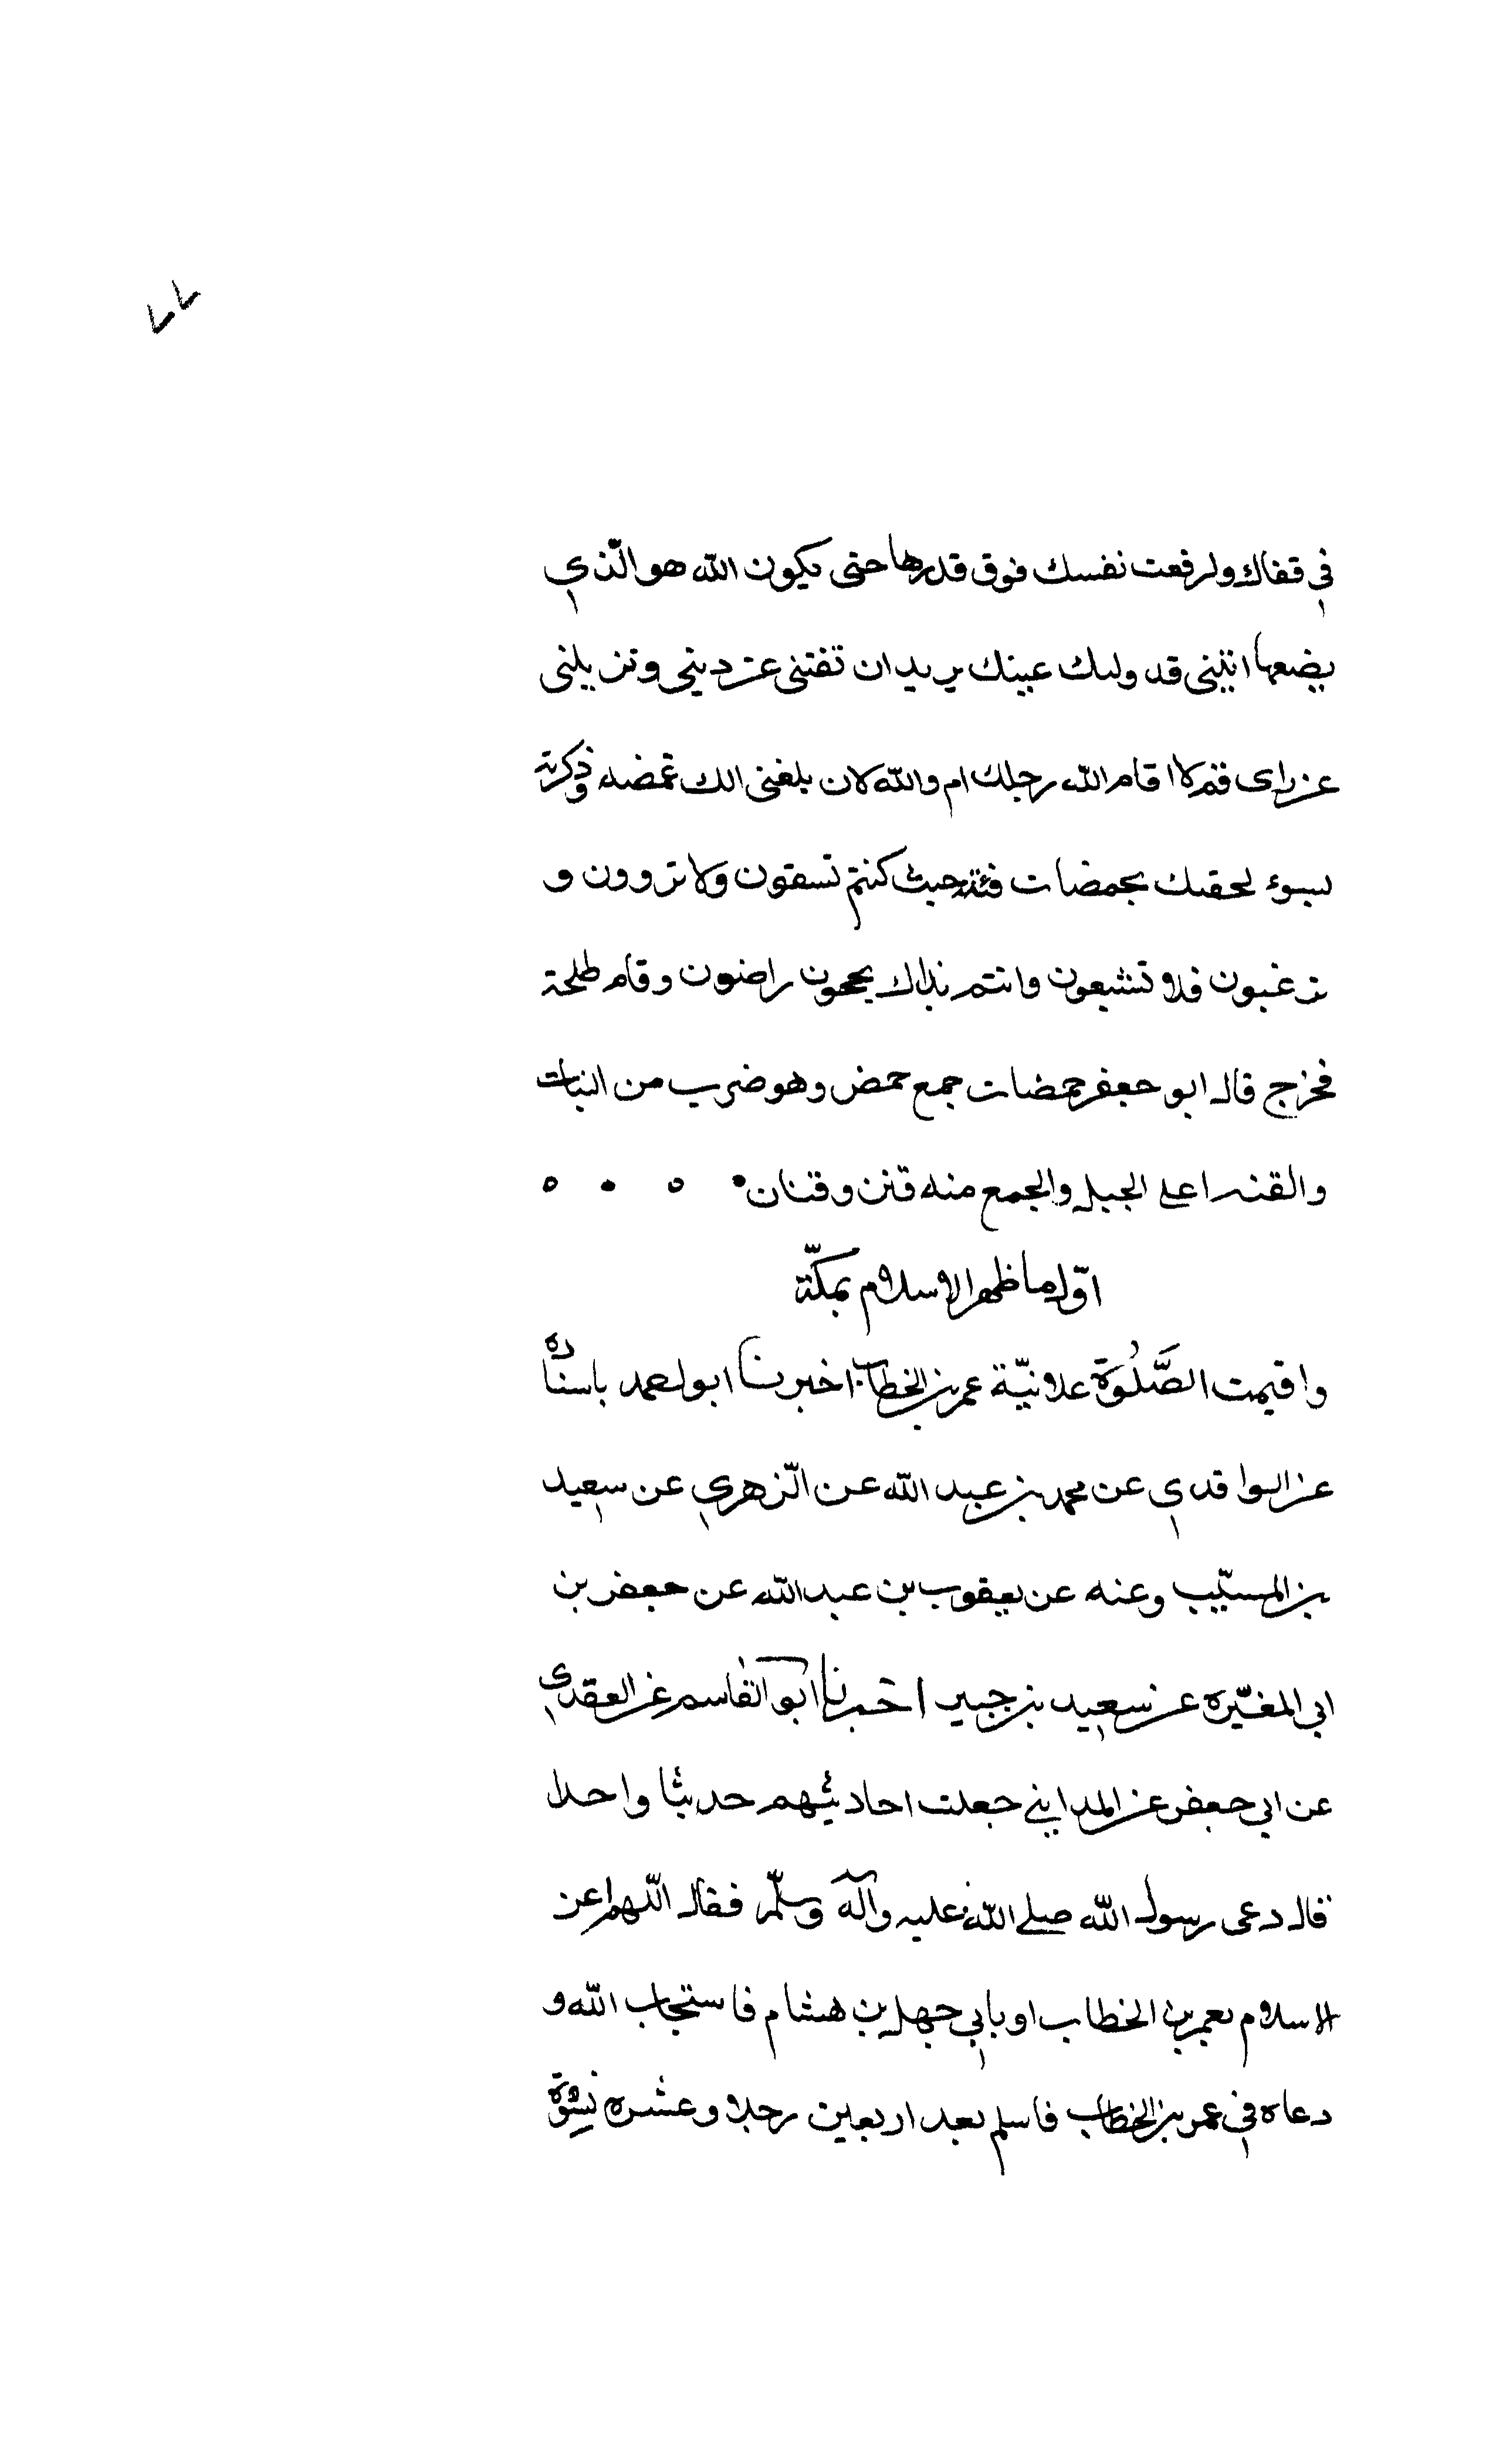 ٧٧
في قفاك ولرفعت نفسك فوق قدرها حتى يكون الله هو الّذي
يضعها اتيتني قد ولىك عينك يريد ان تفتني عن ديني وتزيلني
عن راى قم لا اقام الله رجلك ام والله لان بلغني انك غمضه وذكرته
بسوء لحقنك بحمضات قنّه حيث كنتم تسقون ولا تروون و
ترغبون فلا تشبعون وانتم بذلك بجحون راضون وقام طلحة
فخرج قال ابو جعفر حمضات جمع حمض وهو ضرب من النبات
والقنه اعلى الجبل والجمع منه قنن وقنان
اوّل ما ظهر الاسلام بمكّة
واقيمت الصَّلٰوة علانيّة عمر بن الخطاب اخبرنا ابو احمد باسناده
عن الواقدي عن محمد بن عبد الله عن الزّهري عن سعيد
بن المسيّب وعنه عن يعقوب بن عبد الله عن جعفر بن
ابي المغيّره عن سعيد بن جبير اخبرنا ابو القاسم عن العقدي
عن ابي جعفر عن المدايني جعلت احاديثهم حديثا واحدا
قال دعى رسول الله صلى الله عليه وآله وسلّم فقال اللّهم اعز
الاسلام بعمر بن الخطاب او بابي جهل بن هشام فاستجاب الله و
دعاه في عمر بن الخطاب فاسلم بعد اربعين رجلا وعشره نسوة